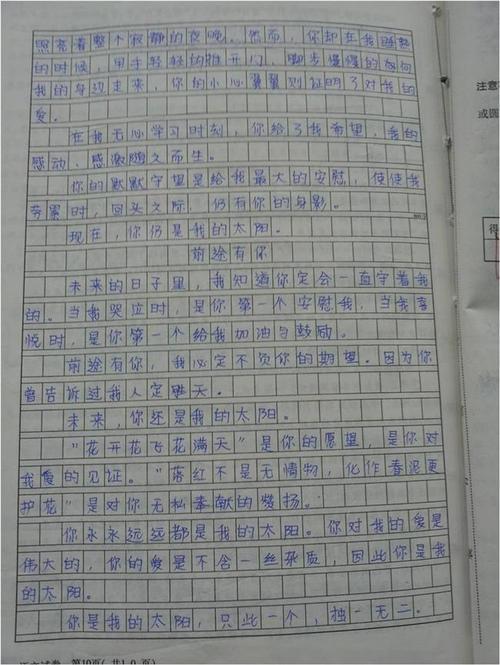 照亮着整个寂静的夜晚。然而，你却在我睡熟
的时候，用手轻轻的推开门，脚步慢慢的向
我的身边走来，你的小心翼翼则证明了对我的
爱。
在我无心学习时刻，你给了我希望，我的
感动、感激随之而生。
你的默默守望是给我最大的安慰，使使我
劳累时，回头之际，仍有你的身影。
现在，你仍是我的太阳。
前途有你
未来的日子里，我知道你定会一直守着我
的。当我哭泣时，是你第一个安慰我，当我喜
悦时，是你第一个给我加油与鼓励。
前途有你，我必定不负你的期望。因为你
曾告诉过我人定胜天。
未来，你还是我的太阳。
“花开花飞花满天”是你的愿望，是你对
我爱的见证。“落红不是无情物，化作春泥更
护花”是对你无私奉献的赞扬。
你永永远远都是我的太阳。你对我的爱是
伟大的，你的爱是不含一丝杂质，因此你是我
的太阳。
你是我的太阳，只此一个，独一无二。
第10页(共10页)
注意
或圆
得